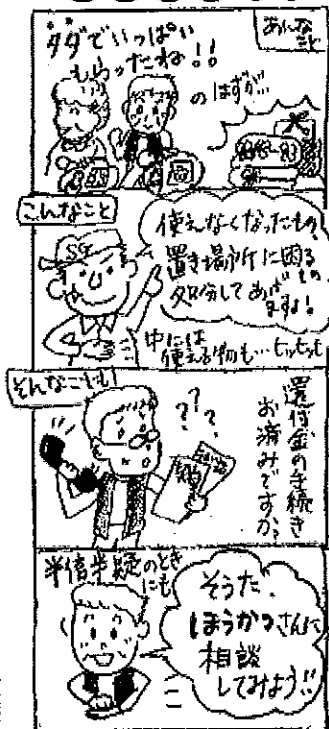 あんな
こと
タダでいっぱい
もらったね!!
のはずが…
こんなこと
使えなくなったもの、
置き場所に困るもの
処分してあげ
ますよ!
中には
使える物も…ヒッヒッヒ
そんなことも!
???
還付金の手続き
お済みですか?
半信半疑のとき
にも
そうだ、
ほうかつさんに
相談
してみよう!!